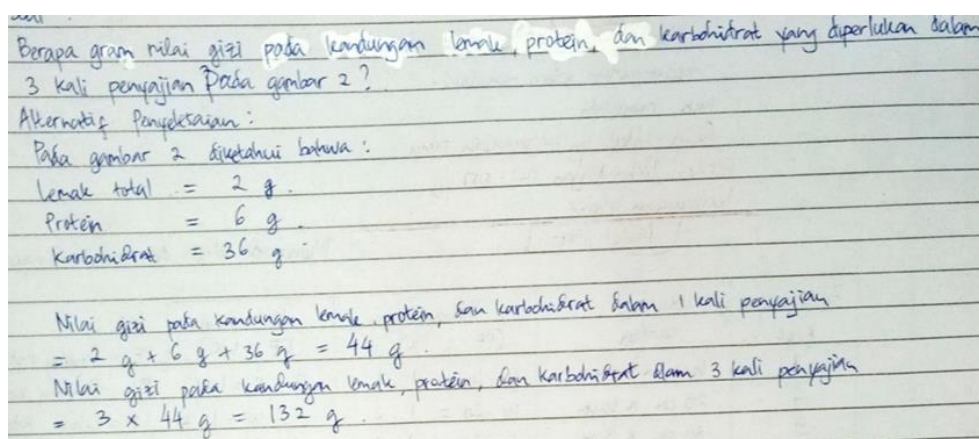 Berapa gram nilai gizi pada kandungan lemak, protein, dan karbohidrat yang diperlukan dalam
3 kali penyajian Pada gambar 2?
Alternatif Penyelesaian:
Pada gambar 2 diketahui bahwa:
lemak total = 2 g.
Protein = 6 g.
Karbohidrat = 36 g
Nilai gizi pada kandungan lemak, protein, dan karbohidrat dalam 1 kali penyajian
= 2 g + 6 g + 36 g = 44 g.
Nilai gizi pada kandungan lemak, protein, dan karbohidrat dlam 3 kali penyajian
= 3 × 44 g = 132 g.